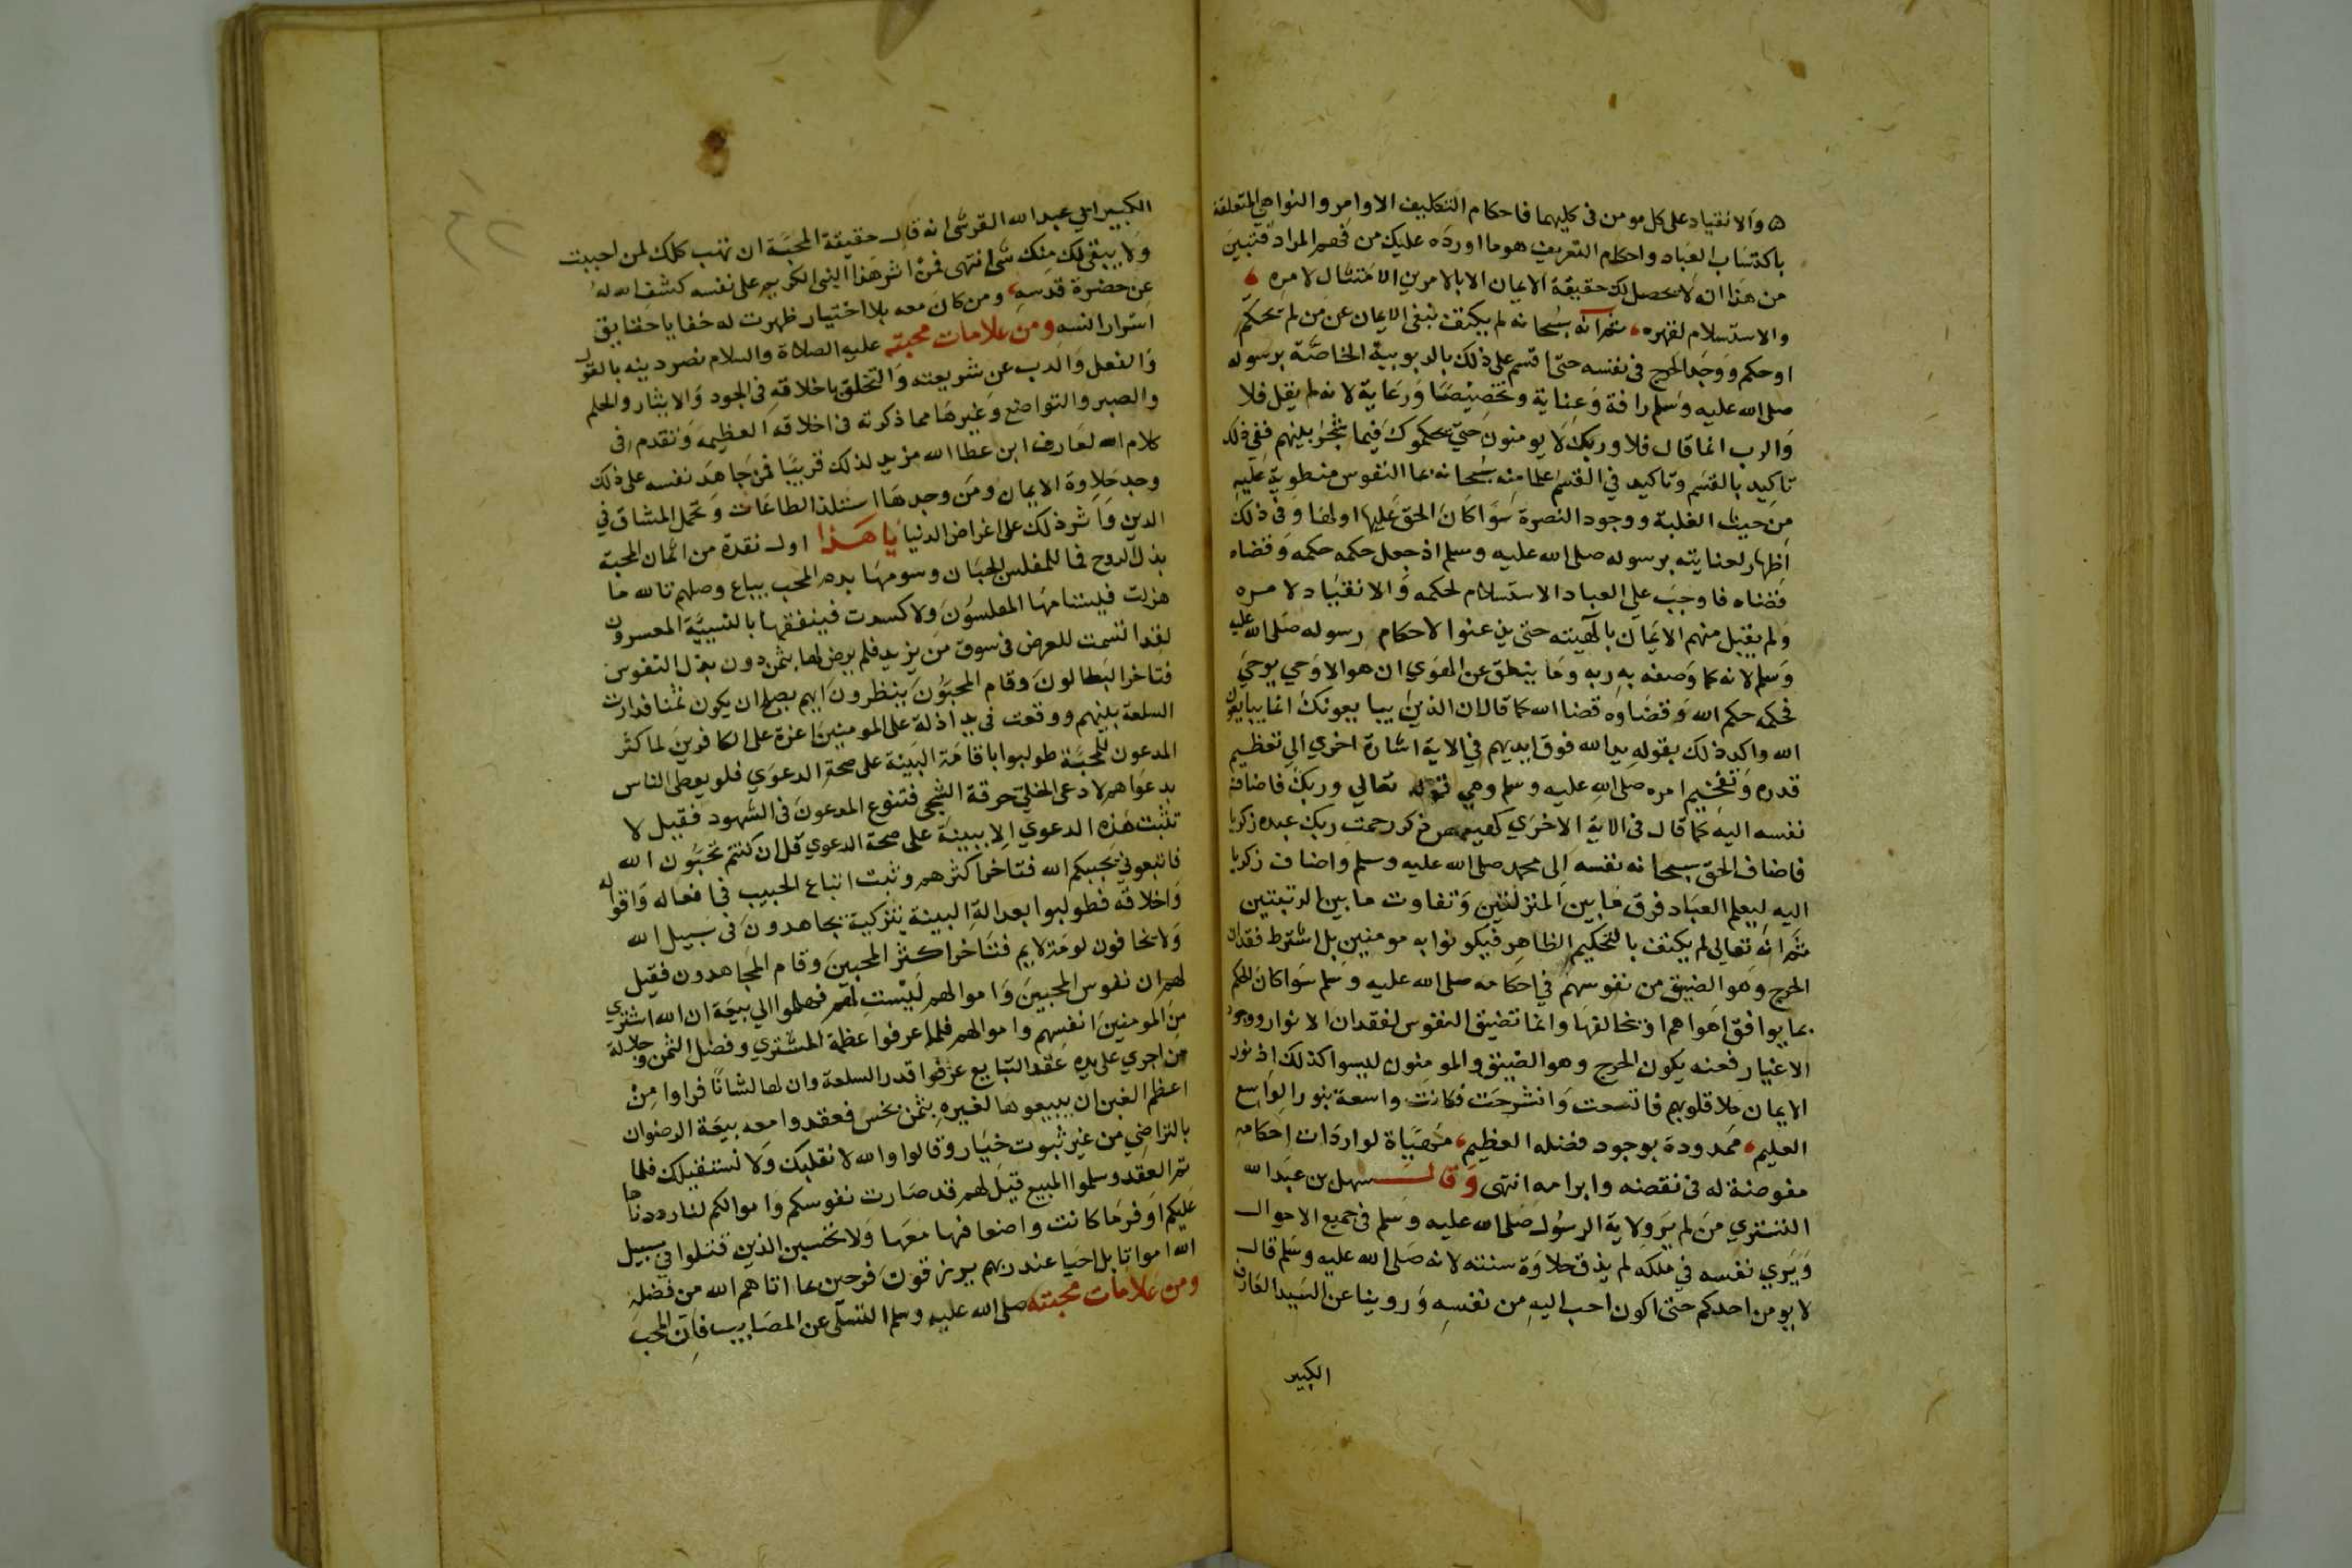 ه والانقياد على كل مومن فى كليهما فاحكام التكليف الاوامر والنواهي المتعلقة
باكتساب العباد واحكام التعريف هوما اورده عليك من فهم المراد فتبين
من هذا انه لا يحصل لك حقيقة الايمان الا بالامرين الامتثال لامره
والاستسلام لقهره ثم انه سبحانه لم يكتف بنفى الايمان عن من لم يحكم
او حكم ووجد الحرج فى نفسه حتى اقسم على ذلك بالربوبية الخاصة برسوله
صلى الله عليه وسلم رافة وعناية وتخصيصا ورعاية لانه لم يقل فلا
والرب انما قال فلا وربك لا يومنون حتى يحكموك فيما شجر بينهم ففى ذلك
تاكيد بالقسم وتاكيد في القسم علما منه سبحانه بما النفوس منطوية عليه
من حيث الغلبة ووجود النصرة سوا كان الحق عليها او لها وفى ذلك
اظهار لعنايته برسوله صلى الله عليه وسلم اذ جعل حكمه حكمه وقضاه
قضاه فاوجب على العباد الاستسلام لحكمه والانقياد لامره
ولم يقبل منهم الايمان بالهيته حتى يذعنوا لاحكام رسوله صلى الله عليه
وسلم لانه كما وصفه به ربه وما ينطق عن الهوي ان هو الا وحي يوحي
فحكمه حكم الله وقضاوه قضا الله كما قال ان الذين يبايعونك انما يبايعون
الله واكد ذلك بقوله يد الله فوق ايديهم في الاية اشارة اخري الى تعظيم
قدره وتفخيم امره صلى الله عليه وسلم وهي قوله تعالي وربك فاضاف
نفسه اليه كما قال فى الاية الاخري كهيعص ذكر رحمت ربك عبده زكريا
فاضاف الحق سبحانه نفسه الى محمد صلى الله عليه وسلم واضاف زكريا
اليه ليعلم العباد فرق ما بين المنزلتين وتفاوت ما بين الرتبتين
ثم انه تعالى لم يكتف بالتحكيم الظاهر فيكونوا به مومنين بل اشترط فقدان
الحرج وهو الضيق من نفوسهم في احكامه صلى الله عليه وسلم سوا كان الحكم
بما يوافق اهواهم او يخالفها وانما تضيق النفوس لفقدان الانوار ووجود
الاغيار فعنه يكون الحرج وهو الضيق والمومنون ليسوا كذلك اذ نور
الايمان ملا قلوبهم فاتسعت وانشرحت فكانت واسعة بنور الواسع
العليم ممدودة بوجود فضله العظيم مهياة لواردات احكامه
مفوضة له فى نقضه وابرامه انتهى وقال سهل بن عبد الله
التستري من لم ير ولاية الرسول صلى الله عليه وسلم فى جميع الاحوال
ويري نفسه في ملكه لم يذق حلاوة سنته لانه صلى الله عليه وسلم قال
لا يومن احدكم حتى اكون احب اليه من نفسه وروينا عن السيد العارف
الكبير
الكبير ابي عبد الله القرشى انه قال حقيقة المحبة ان تهب كلك لمن احببت
ولا يبقى لك منك شى انتهى فمن اثر هذا النبى الكريم على نفسه كشف الله له
عن حضرة قدسه ومن كان معه بلا اختيار ظهرت له خفايا حقايق
اسرار انسه ومن علامات محبته عليه الصلاة والسلام نصر دينه بالقول
والفعل والذب عن شريعته والتخلق باخلاقه فى الجود والايثار والحلم
والصبر والتواضع وغيرها مما ذكرته فى اخلاقه العظيمة وتقدم فى
كلام العارف ابن عطا الله مزيد لذلك قريبا فمن جاهد نفسه على ذلك
وجد حلاوة الايمان ومن وجدها استلذ الطاعات وتحمل المشاق في
الدين واثر ذلك على اغراض الدنيا يا هذا اول نقدة من اثمان المحبة
بذل الروح فما للمفلس الجبان وسومها بدم المحب يباع وصلهم تالله ما
هزلت فيستامها المفلسون ولا كسدت فينفقها بالنسيئة المعسرون
لقد اقيمت للعرض فى سوق من يزيد فلم يرض لها بثمن دون بذل النفوس
فتاخر البطالون وقام المحبون ينظرون ايهم يصلح ان يكون ثمنا فدارت
السلعة بينهم ووقعت في يد اذلة على المومنين اعزة على الكافرين لما كثر
المدعون للمحبة طولبوا باقامة البينة على صحة الدعوي فلو يعطى الناس
بدعواهم لادعى الخلي حرقة الشجى فتنوع المدعون فى الشهود فقيل لا
تثبت هذه الدعوي الا ببينة على صحة الدعوي قل ان كنتم تحبون الله
فاتبعوني يحببكم الله فتاخر اكثرهم وثبت اتباع الحبيب في افعاله واقواله
واخلاقه فطولبوا بعدالة البينة بتزكية يجاهدون فى سبيل الله
ولا يخافون لومة لايم فتاخر اكثر المحبين وقام المجاهدون فقيل
لهم ان نفوس المحبين واموالهم ليست لهم فهلموا الي بيعة ان الله اشتري
من المومنين انفسهم واموالهم فلما عرفوا عظمة المشتري وفضل الثمن وجلالة
من اجري على يده عقد التبايع عرفوا قدر السلعة وان لها لشانا فراوا من
اعظم الغبن ان يبيعوها لغيره بثمن بخس فعقدوا معه بيعة الرضوان
بالتراضي من غير ثبوت خيار وقالوا والله لا نقيلك ولا نستقيلك فلما
تم العقد وسلموا المبيع قيل لهم قد صارت نفوسكم واموالكم لنا رددناها
عليكم اوفر ما كانت واضعافها معها ولا تحسبن الذين قتلوا في سبيل
الله امواتا بل احيا عند ربهم يرزقون فرحين بما اتاهم الله من فضله
ومن علامات محبته صلى الله عليه وسلم التسلى عن المصايب فان المحب